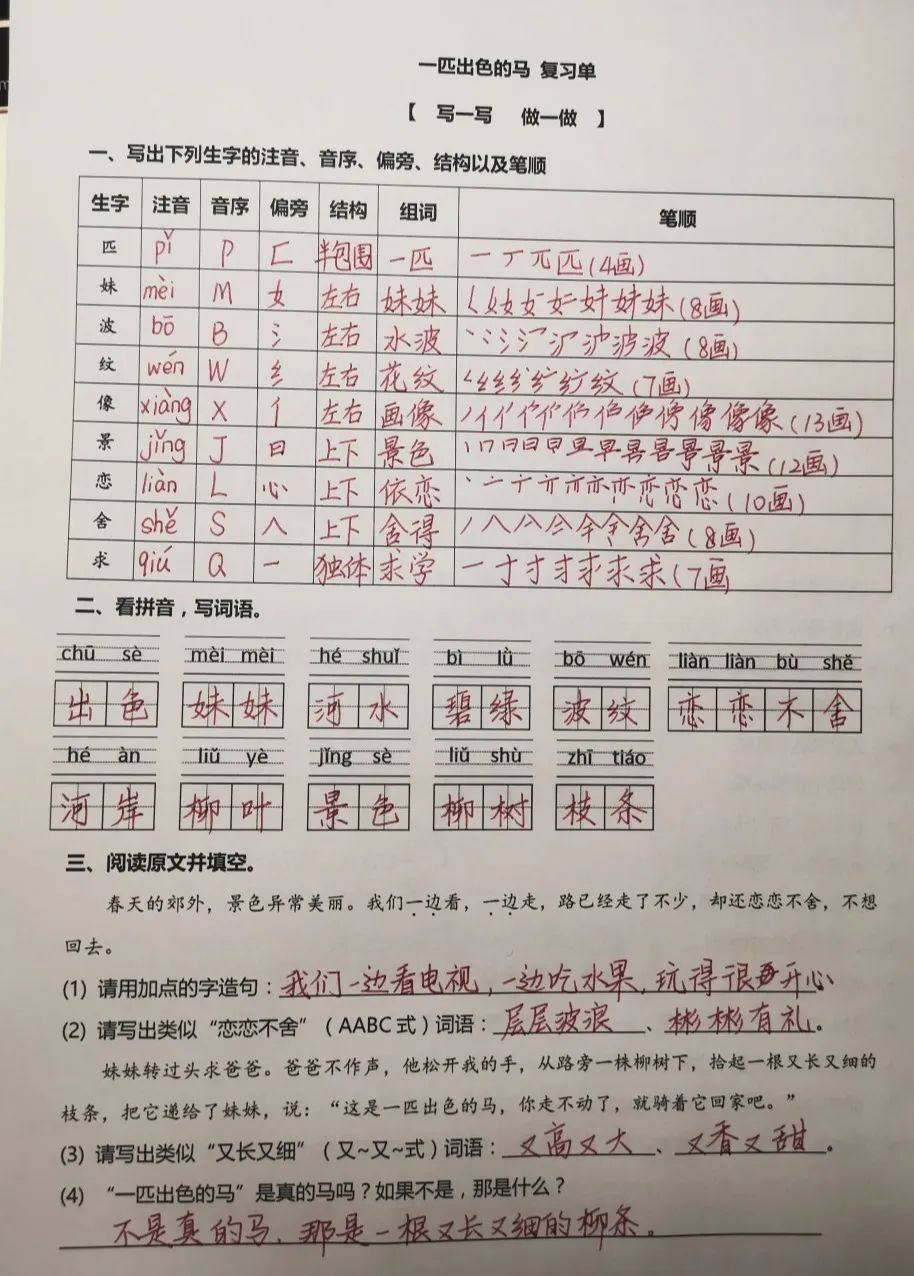 一匹出色的马 复习单
【 写一写 做一做 】
一、写出下列生字的注音、音序、偏旁、结构以及笔顺
生字 注音 音序 偏旁 结构 组词 笔顺
匹 pǐ P 匚 半包围 一匹 一丆兀匹(4画)
妹 mèi M 女 左右 妹妹 (8画)
波 bō B 氵 左右 水波 (8画)
纹 wén W 纟 左右 花纹 (7画)
像 xiàng X 亻 左右 画像 (13画)
景 jǐng J 日 上下 景色 (12画)
恋 liàn L 心 上下 依恋 (10画)
舍 shě S 人 上下 舍得 (8画)
求 qiú Q 一 独体 求学 (7画
二、看拼音，写词语。
chū sè mèi mèi hé shuǐ bì lǜ bō wén liàn liàn bù shě
出色 妹妹 河水 碧绿 波纹 恋恋不舍
hé àn liǔ yè jǐng sè liǔ shù zhī tiáo
河岸 柳叶 景色 柳树 枝条
三、阅读原文并填空。
春天的郊外，景色异常美丽。我们一边看，一边走，路已经走了不少，却还恋恋不舍，不想
回去。
(1) 请用加点的字造句：我们一边看电视，一边吃水果，玩得很开心
(2) 请写出类似“恋恋不舍”（AABC式）词语：层层波浪、彬彬有礼。
妹妹转过头求爸爸。爸爸不作声，他松开我的手，从路旁一株柳树下，拾起一根又长又细的
枝条，把它递给了妹妹，说：“这是一匹出色的马，你走不动了，就骑着它回家吧。”
(3) 请写出类似“又长又细”（又~又~式）词语：又高又大、又香又甜。
(4) “一匹出色的马”是真的马吗？如果不是，那是什么？
不是真的马，那是一根又长又细的柳条。